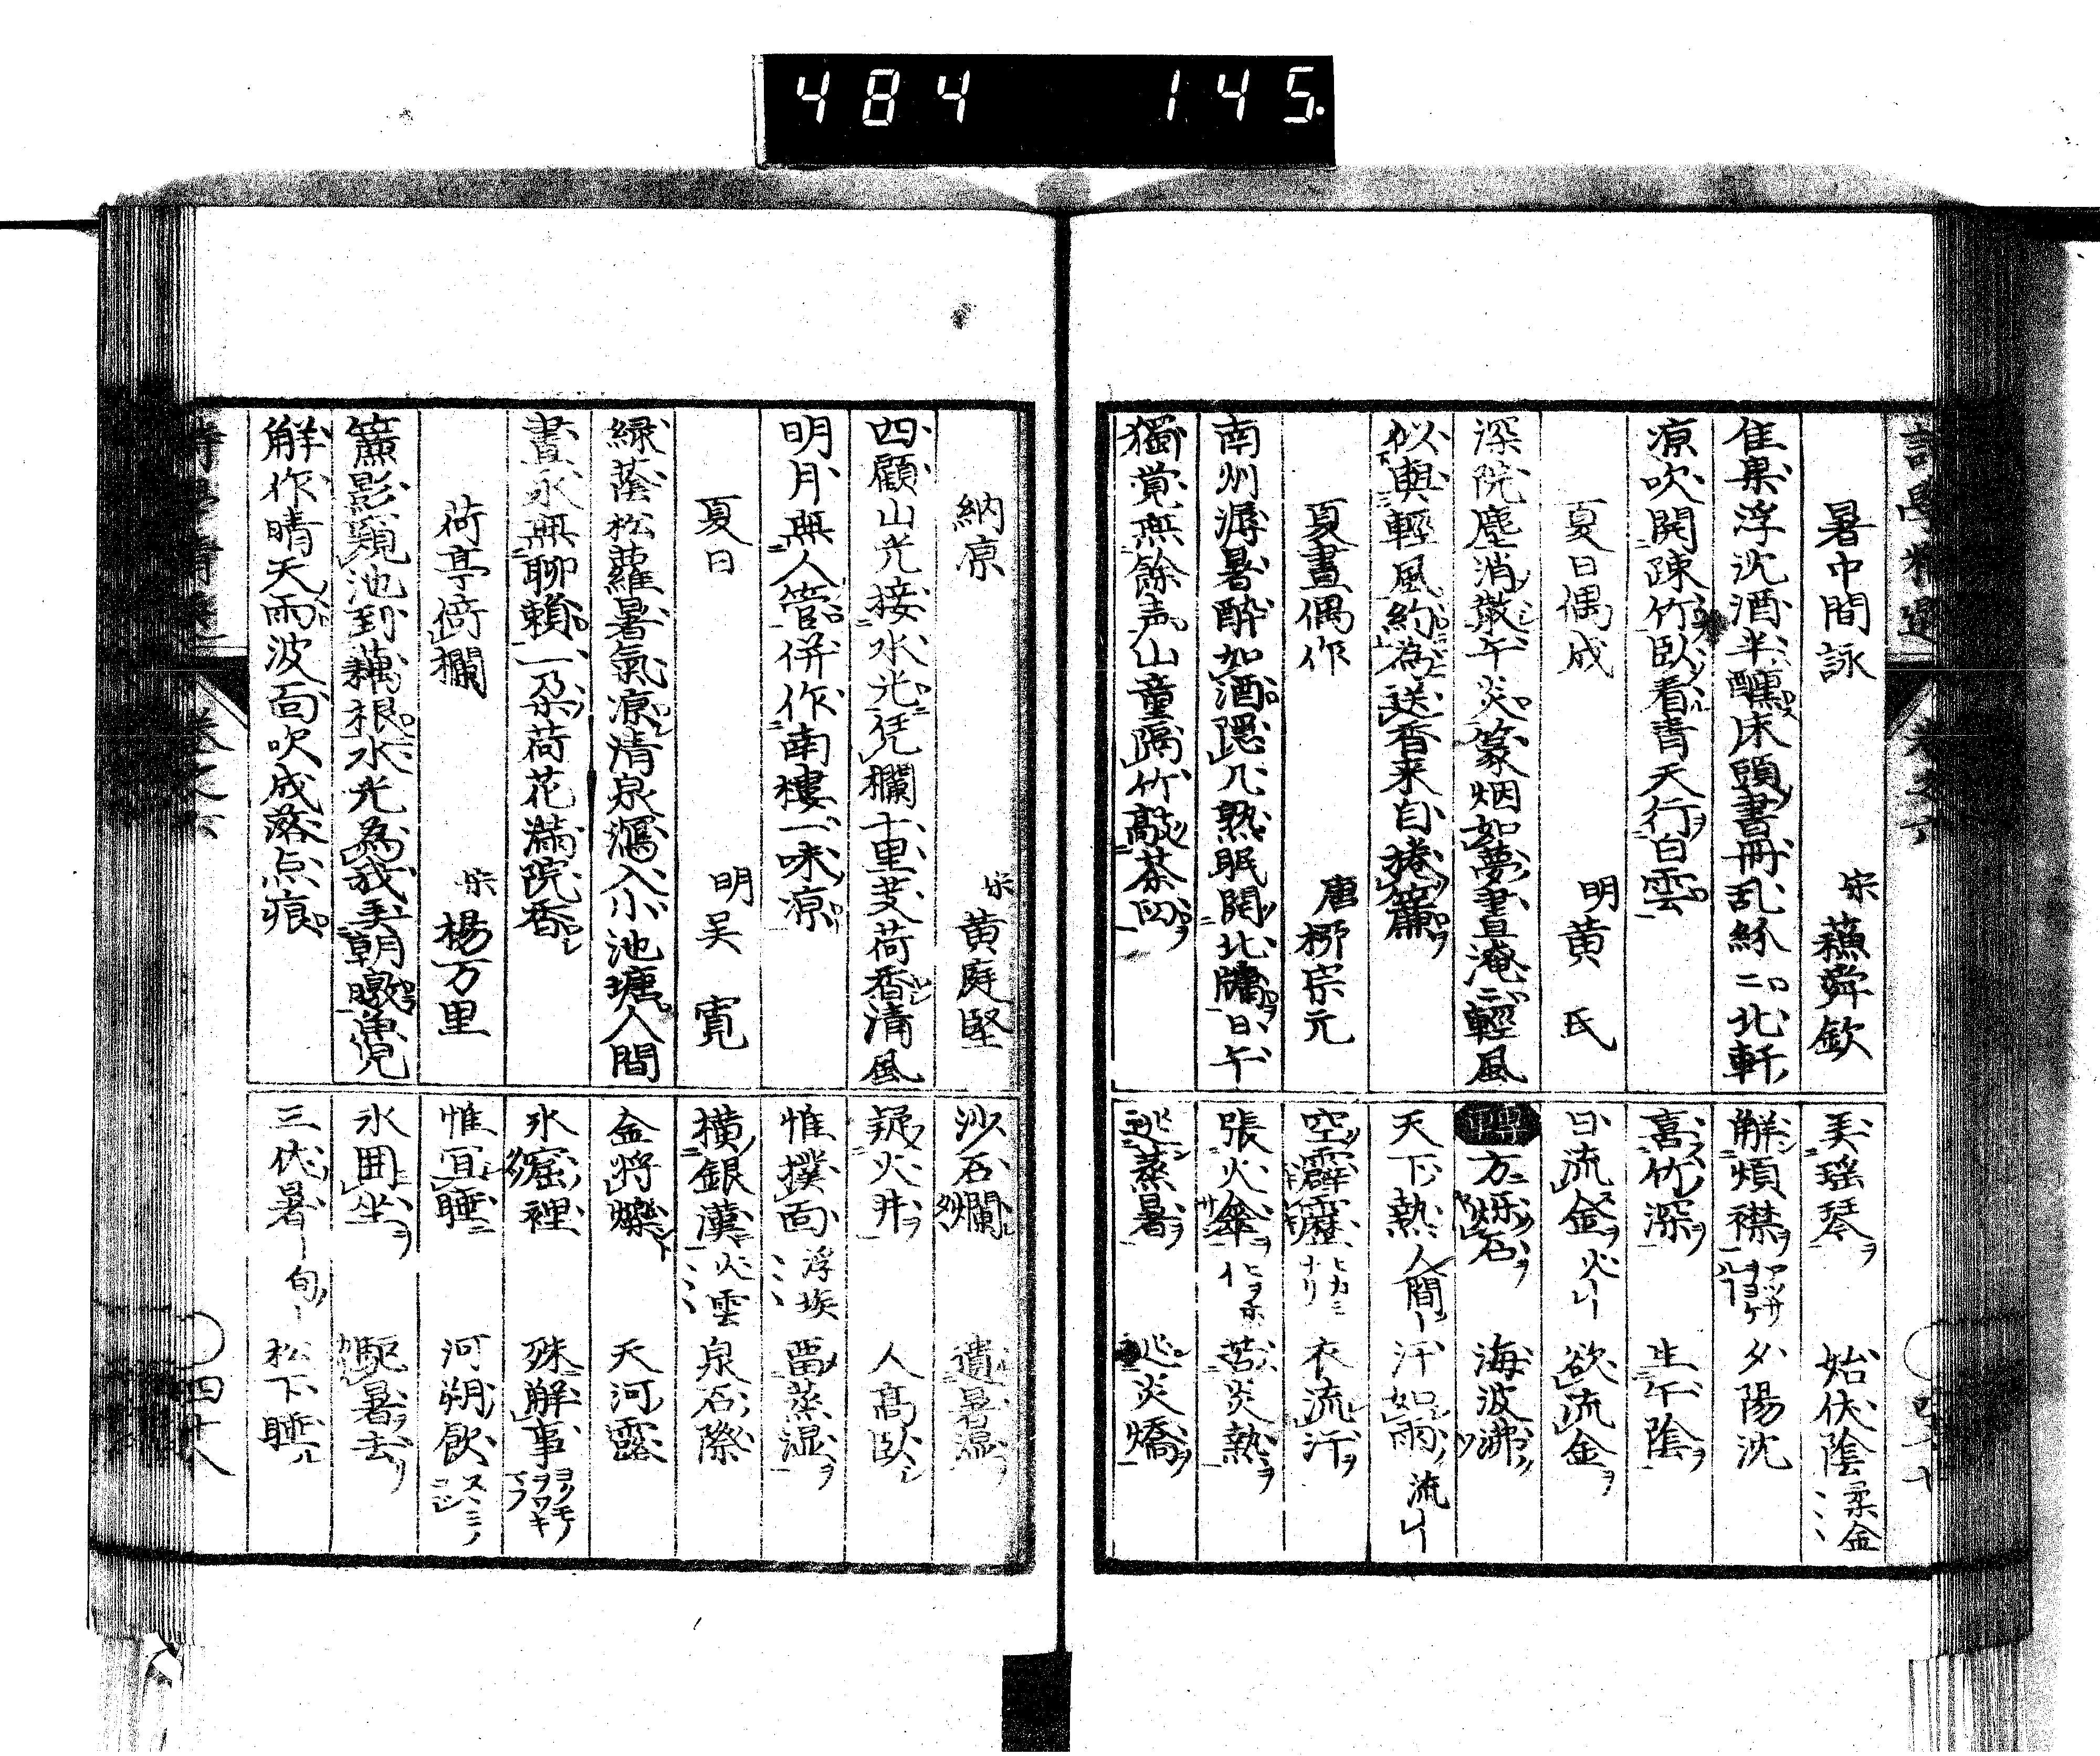 484 145.
暑中間詠 宋 蘓舜欽
隹果浮沈酒半醺床頭書冊乱紛二北軒
凉吹開踈竹臥看青天行白雲
夏日偶成 明 黄氏
深院塵消散午炎篆烟如夢晝淹二輕風
似與輕風約為送香来自捲簾
夏晝偶作 唐 栁宗元
南州溽暑酔如酒隠几熟眠開北牖日午
獨覚無餘声山童隔竹敲茶臼
美瑶琴 始伏陰 柔金
解煩襟 夕陽沈
喜竹深 生午陰
日流金 火 欲流金
方爍石 海波沸
天下熱 人間 汗如雨 流
空霹靂 ヒカミナリ 衣流汗
張火傘 苦炎熱
逃蒸暑 逃炎熇
納凉 宋 黄庭堅
四顧山光接水光凭欄十里芰荷香清風
明月無人管併作南樓一味凉
夏日 明 吴寛
緑蔭松蘿暑氣凉清泉瀉入小池塘人間
晝永無聊頼一朶荷花満院香
荷亭倚欄 宋 楊万里
簾影窺池到藕根水光為我美朝暾漁児
解作晴天雨波面吹成落点痕
沙石爛 遺暑湿
疑火井 人高臥
惟撲面 浮埃 畱蒸湿
横銀漢 火雲 泉石際
金將爍 天河露
氷窟裡 殊解事
惟冝睡 河朔飲
氷囲坐 駈暑去
三伏暑 旬 松下睡
四十八